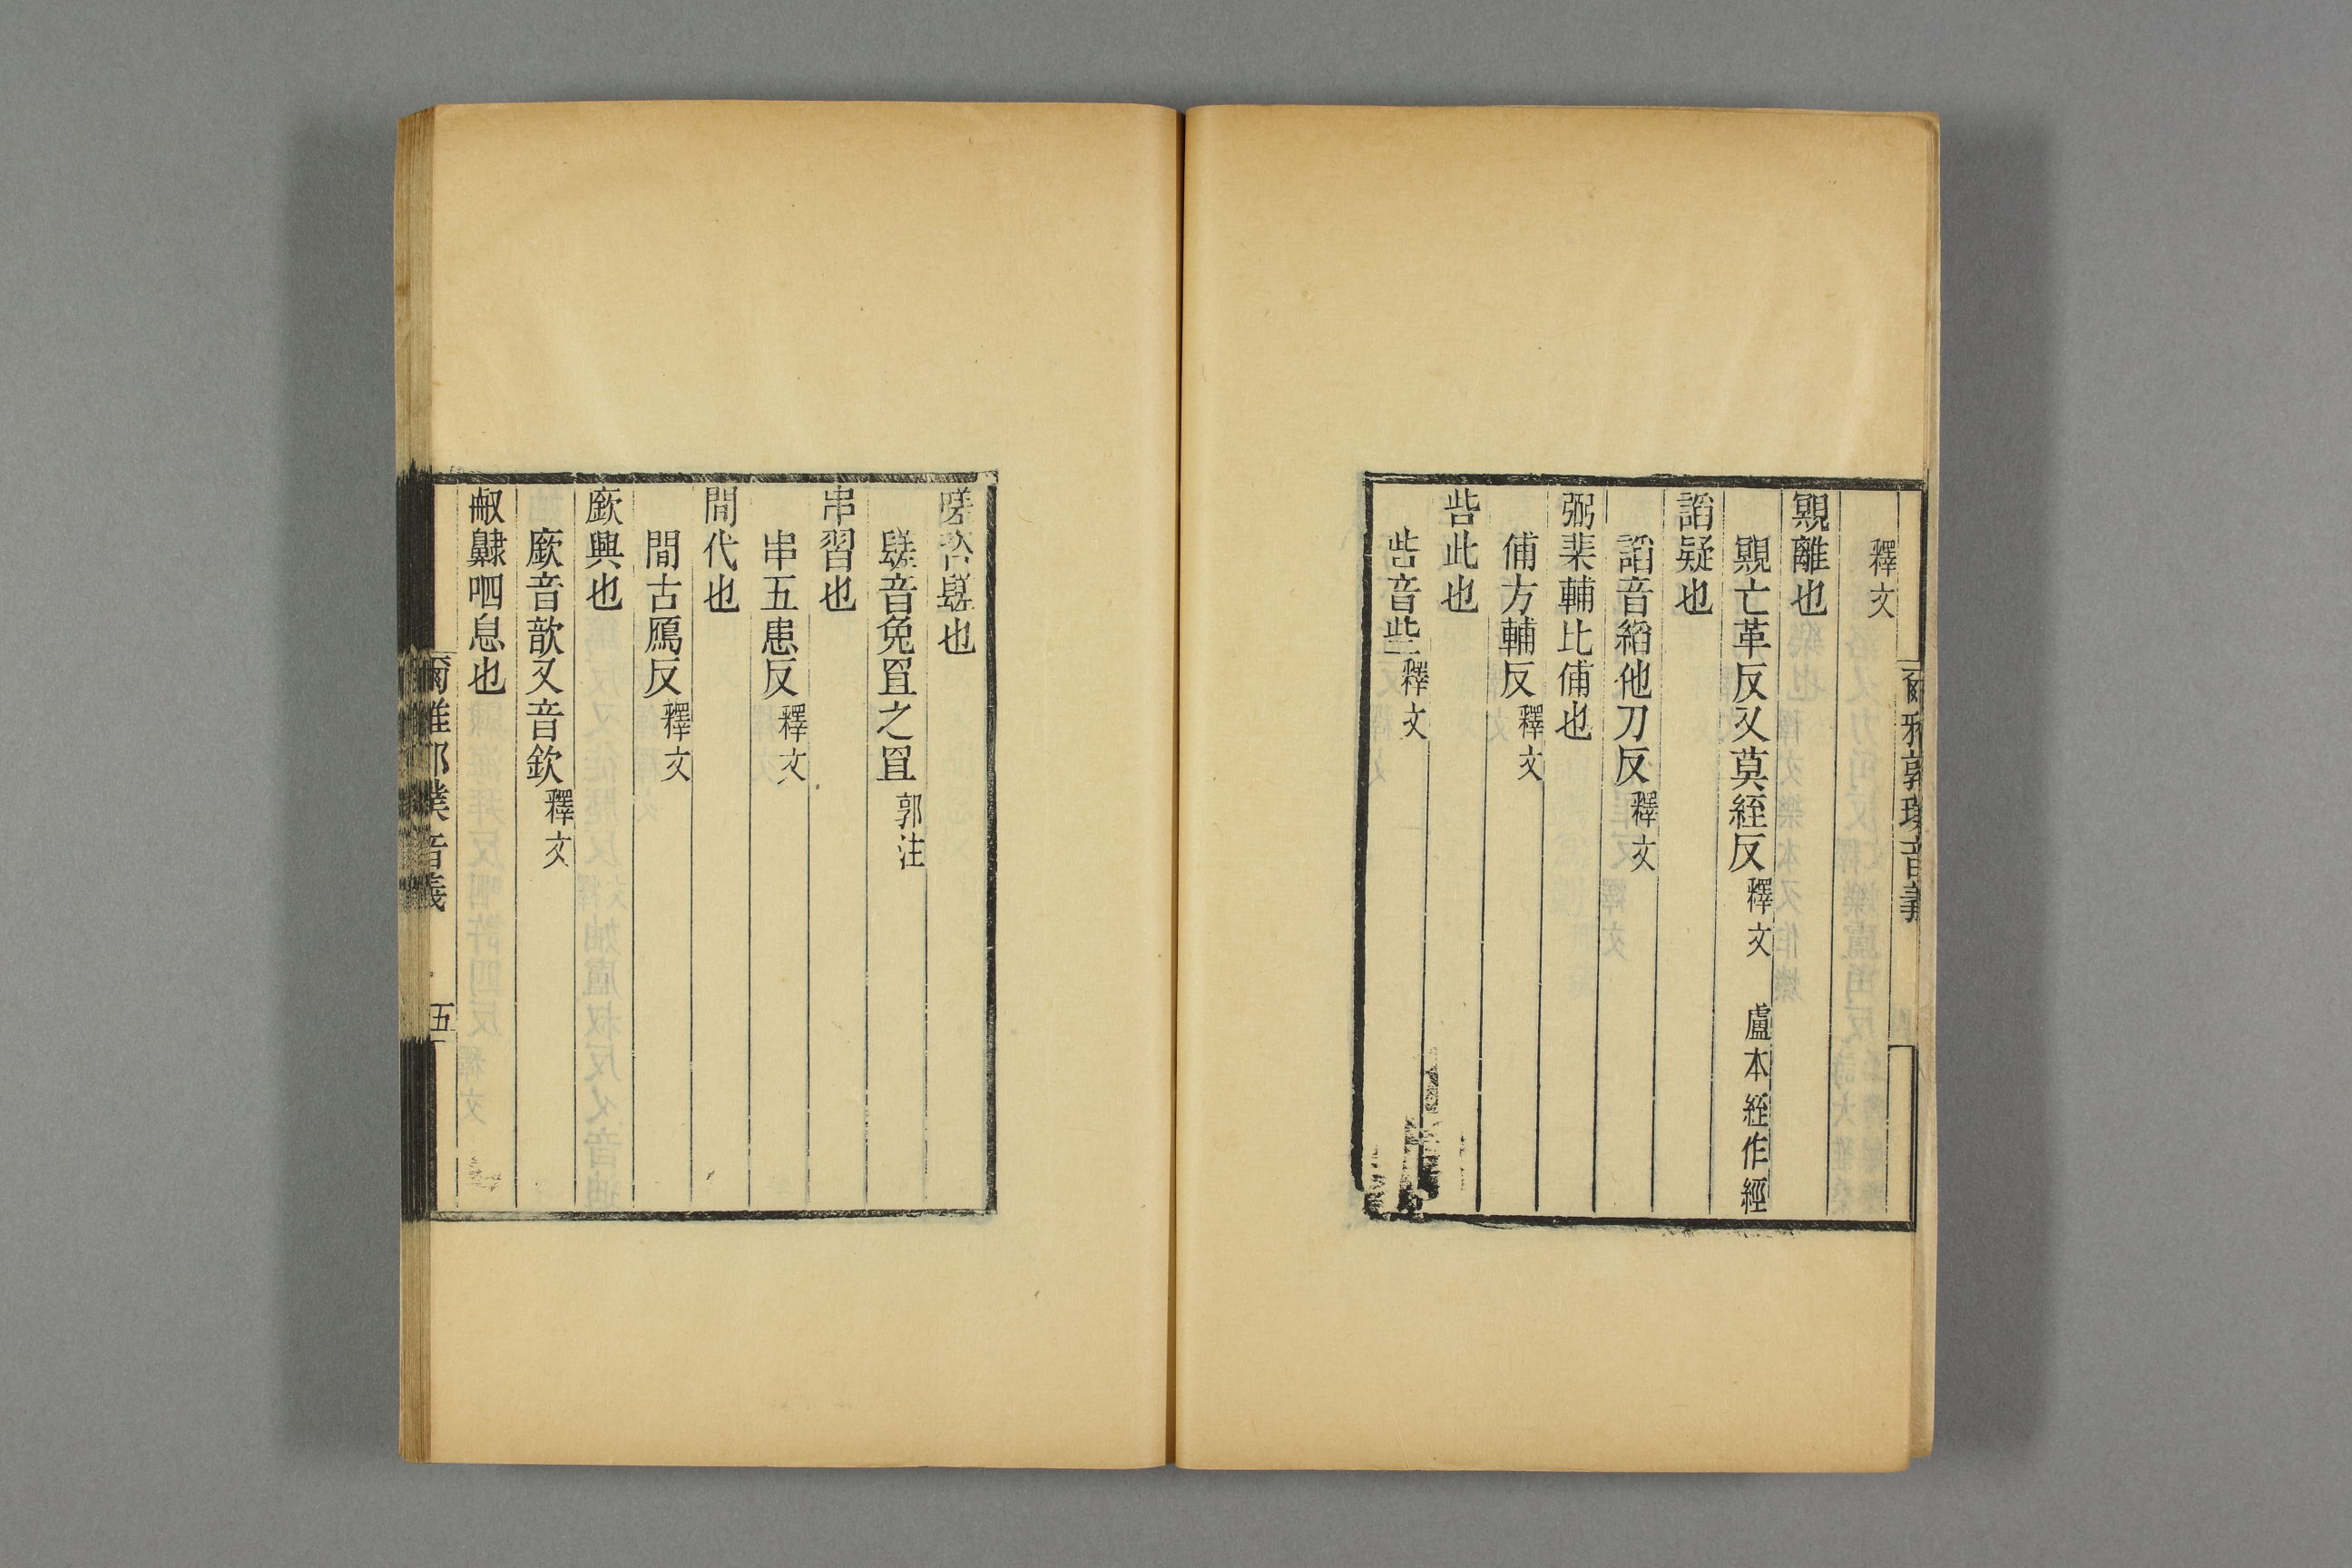 爾雅郭璞音義
釋文
覭離也
覭亡革反又莫絰反釋文　盧本絰作經
謟疑也
謟音縚他刀反釋文
弼棐輔比俌也
俌方輔反釋文
呰此也
呰音些釋文
𨲠也
音兔罝之罝郭注
串習也
串五患反釋文
閒代也
閒古鴈反釋文
廞興也
廞音歆又音欽釋文
齂呬息也
爾雅郭璞音義
五